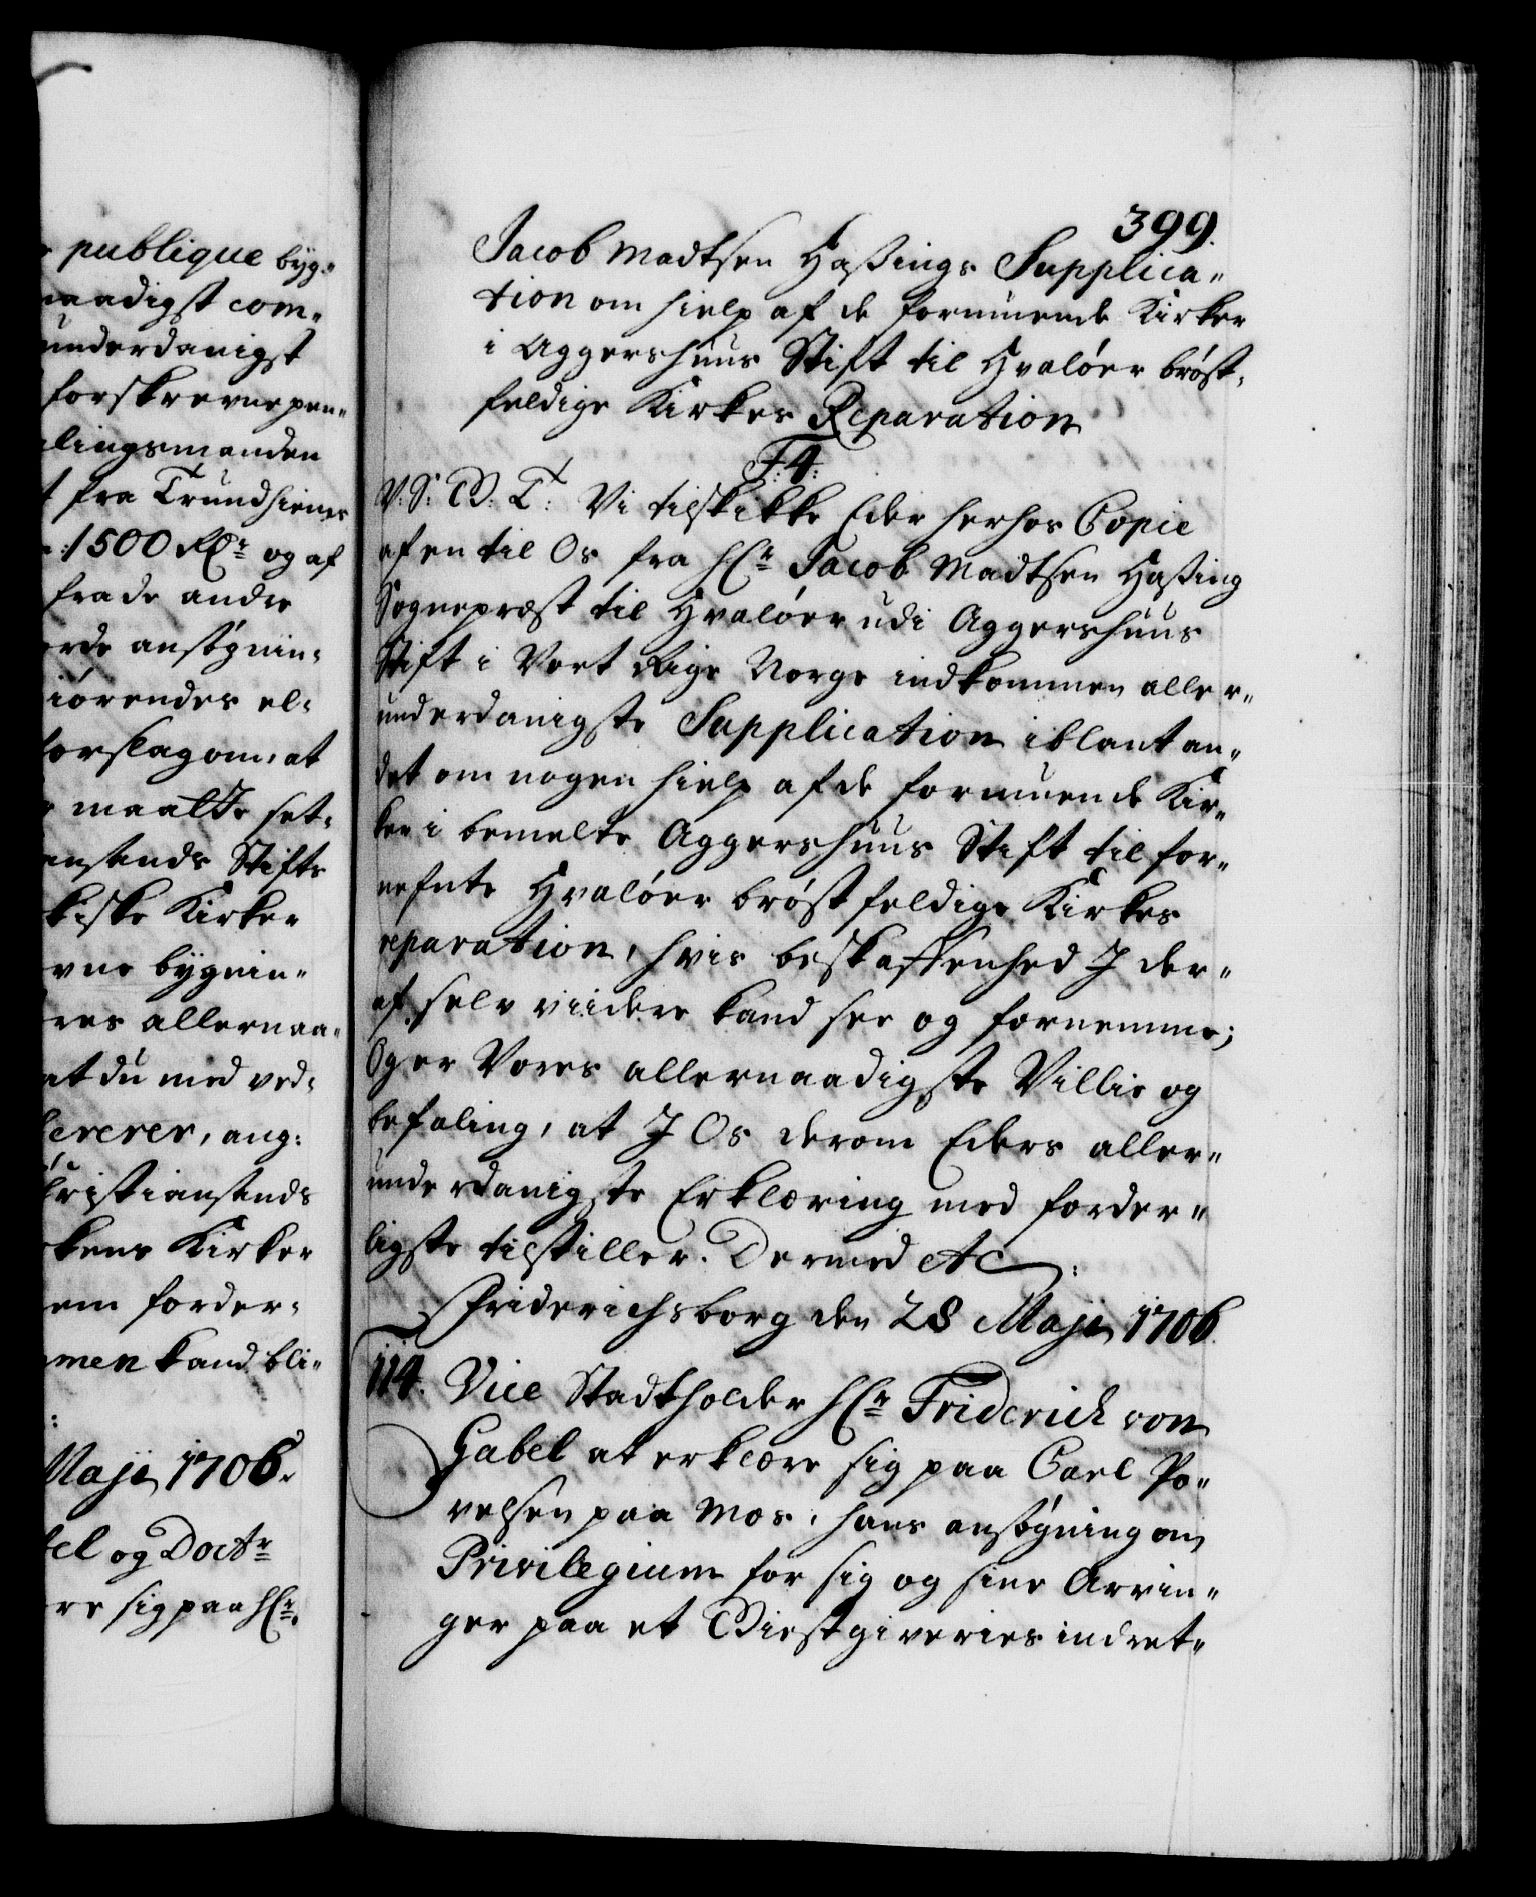 publique byg„
naadigst com„
underdanigst
forskrevne pen„
lingsmanden
fra Trundhiems
1500 Rdr og af
fra de andre
ansøgnin„
giørendes el„
forslag om, at
maatte set„
ansands Stifts
Kirker
bygnin„
res allernaa„
at du med ved„
ang:
Christiansands
Kirker
em forder„
men kand bli„
Maji 1706.
og Doctr
re sig paa Hr.
399.
Jacob Madtsen Hassings Supplica„
tion om hielp af de formuende Kirker
i Aggershuus Stift til Hvaløer brøst„
feldige Kirkes Reparation
F. 4.
V: S: W. T: Vi tilskikke Eder herhos Copie
af en til Os fra Hr Jacob Madtsen Hassing
Sognepræst til Hvaløer udi Aggershuus
Stift i Vort Rige Norge indkommen aller„
underdanigste Supplication iblant an„
det om nogen hielp af de formuende Kir„
ker i bemelte Aggershuus Stift til for„
nefnte Hvaløer brøstfeldige Kirkes
reparation, hvis beskaffenhed I der„
af selv viidere kand see og fornemme;
Og er Vores allernaadigste Villie og
befaling, at I Os derom Eders aller„
underdanigste Erklæring med forder„
ligste tilstiller. Dermed etc:
Friderichsborg den 28 Maji 1706.
114. Vice Stadtholder Hr Friderich von
Gabel at erklære sig paa Carl Po„
velsen paa Mos, hans ansøgning om
Privilegium for sig og sine Arvin„
ger paa et Giestgiveries indret„